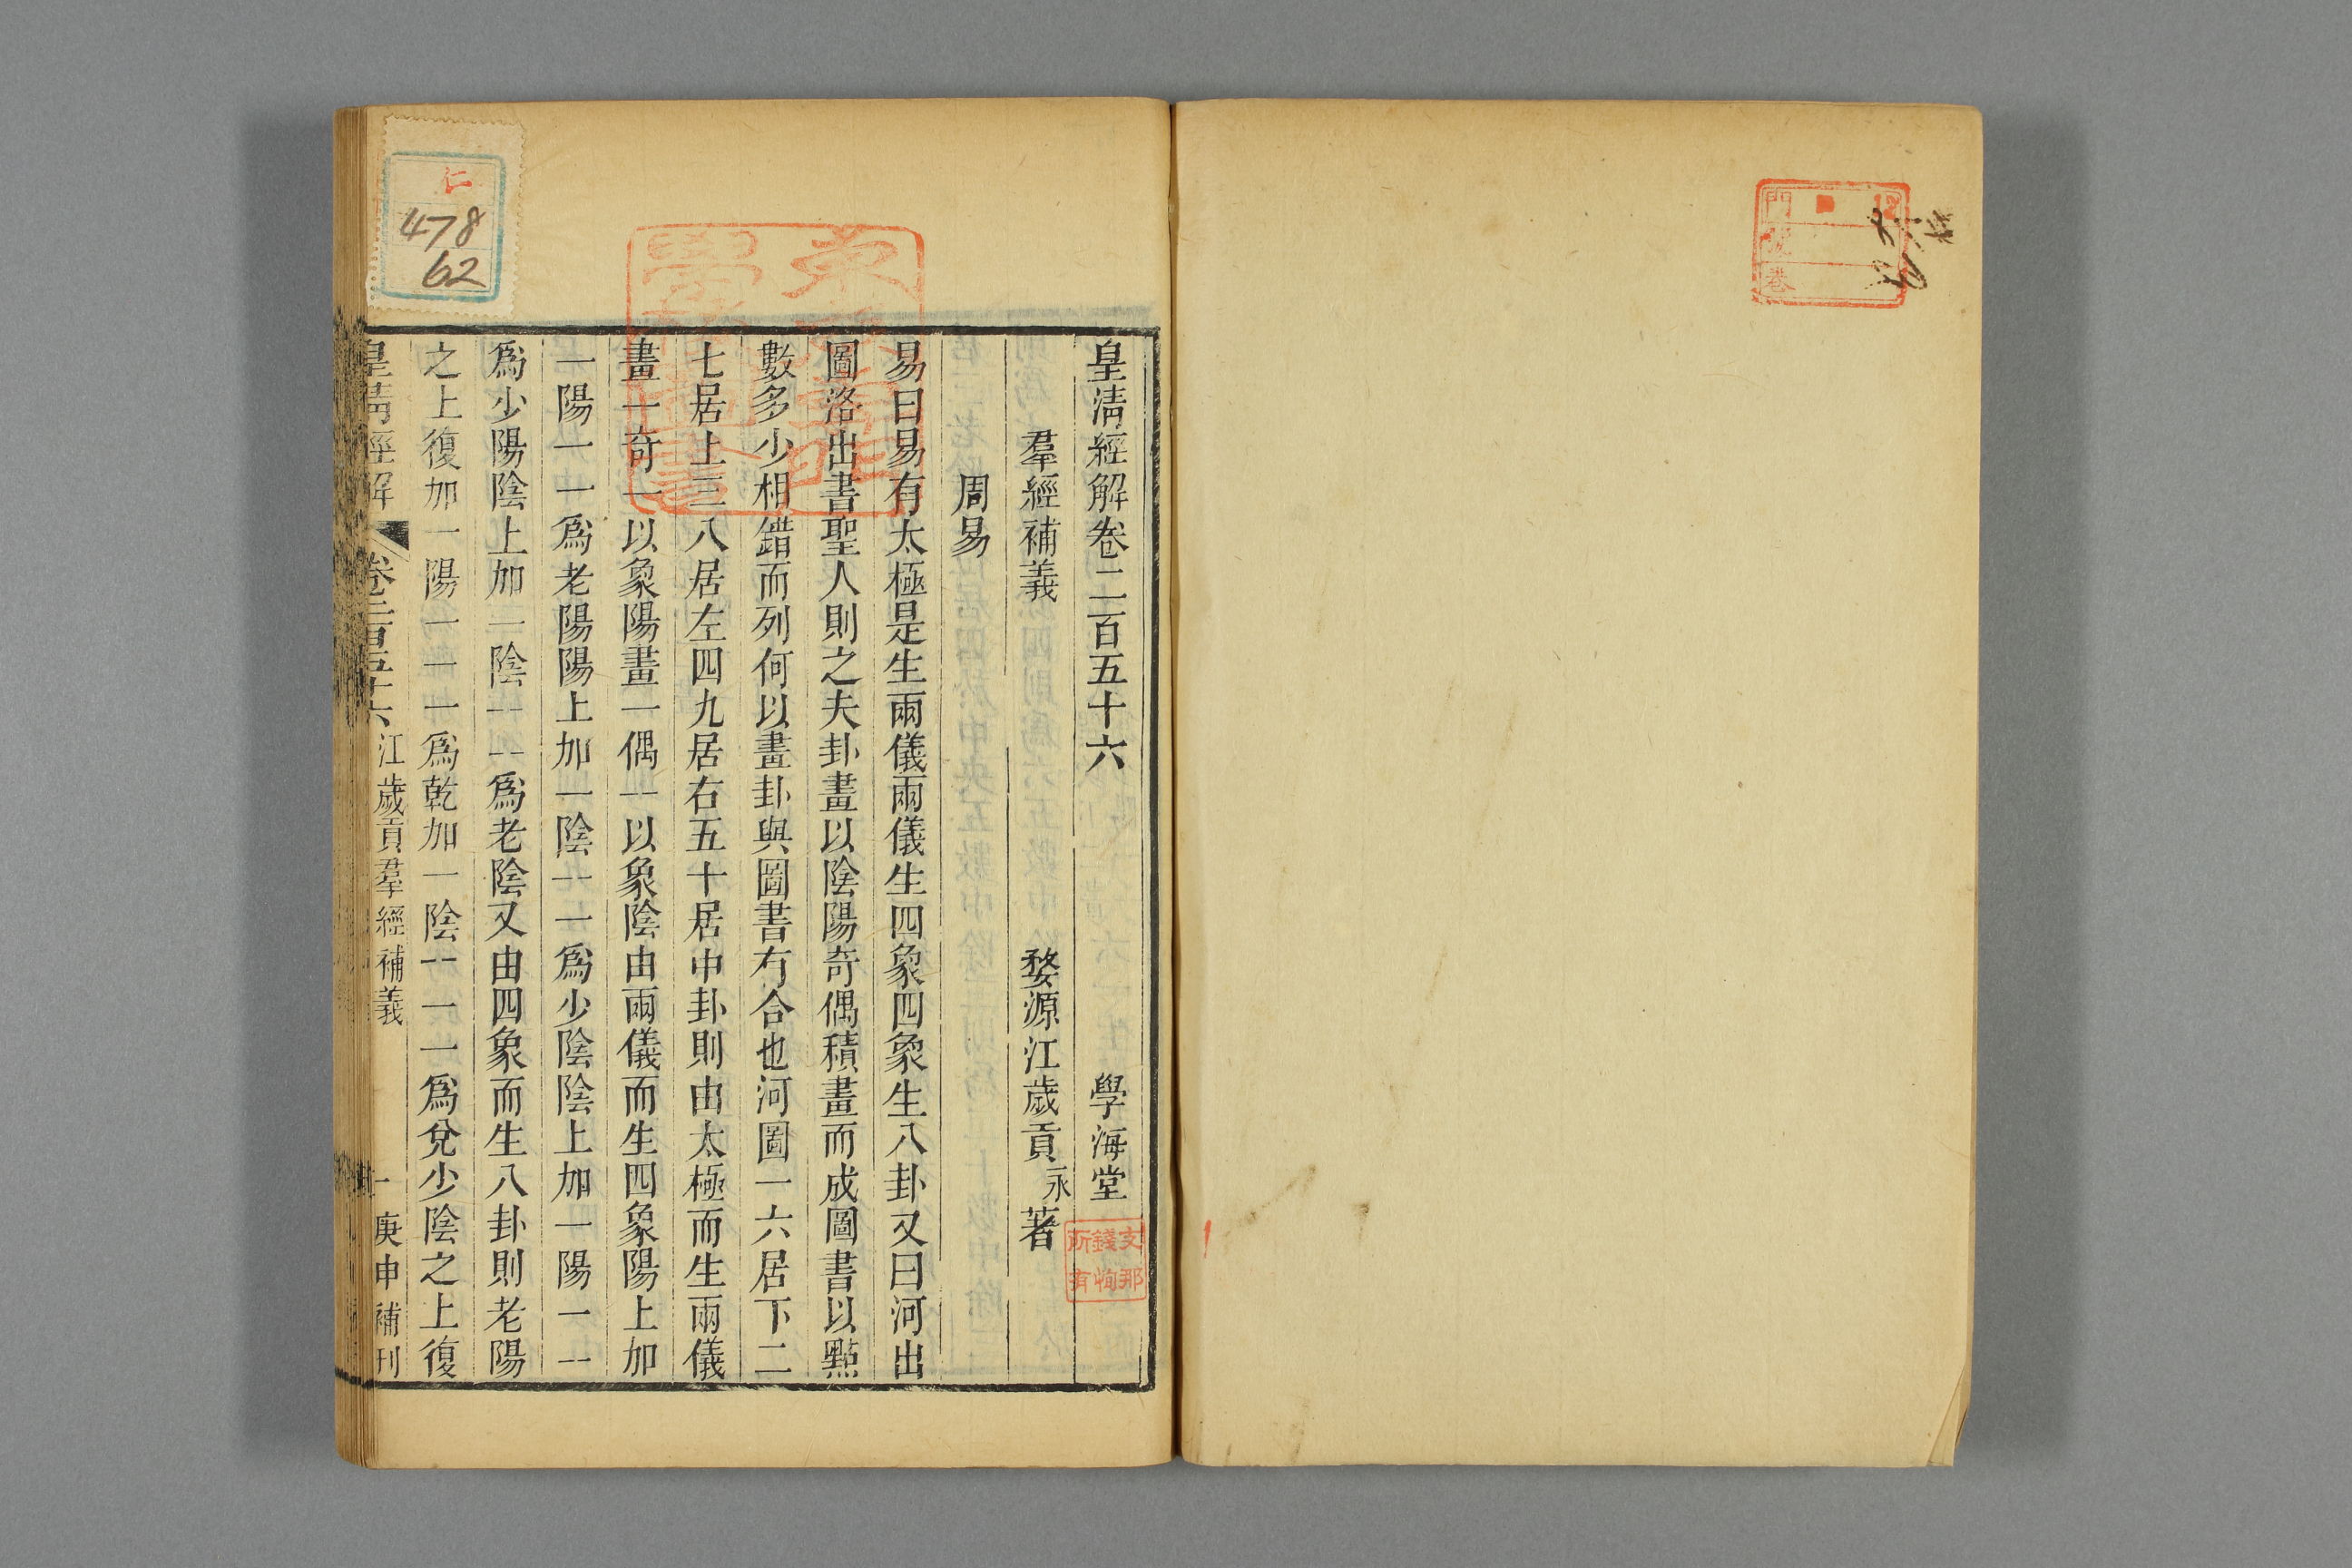 皇淸經解卷二百五十六　學海堂
羣經補義　婺源江歲貢永著
周易
易曰易有太極是生兩儀兩儀生四象四象生八卦又曰河出
圖洛出書聖人則之夫卦畫以陰陽奇偶積畫而成圖書以點
數多少相錯而列何以畫卦與圖書冇合也河圖一六居下二
七居上三八居左四九居右五十居中卦則由太極而生兩儀
畫一奇一以象陽畫一偶⚋以象陰由兩儀而生四象陽上加
一陽一一爲老陽陽上加一陰⚋一爲少陰陰上加一陽一⚋
爲少陽陰上加一陰⚋⚋爲老陰又由四象而生八卦則老陽
之上復加一陽一一一爲乾加一陰⚋一一爲兌少陰之上復
皇淸經解　卷二百五十六　江歲貢羣經補義　一　庚申補刊
仁
478
62
支那
錢恂
所有
門
號
巷